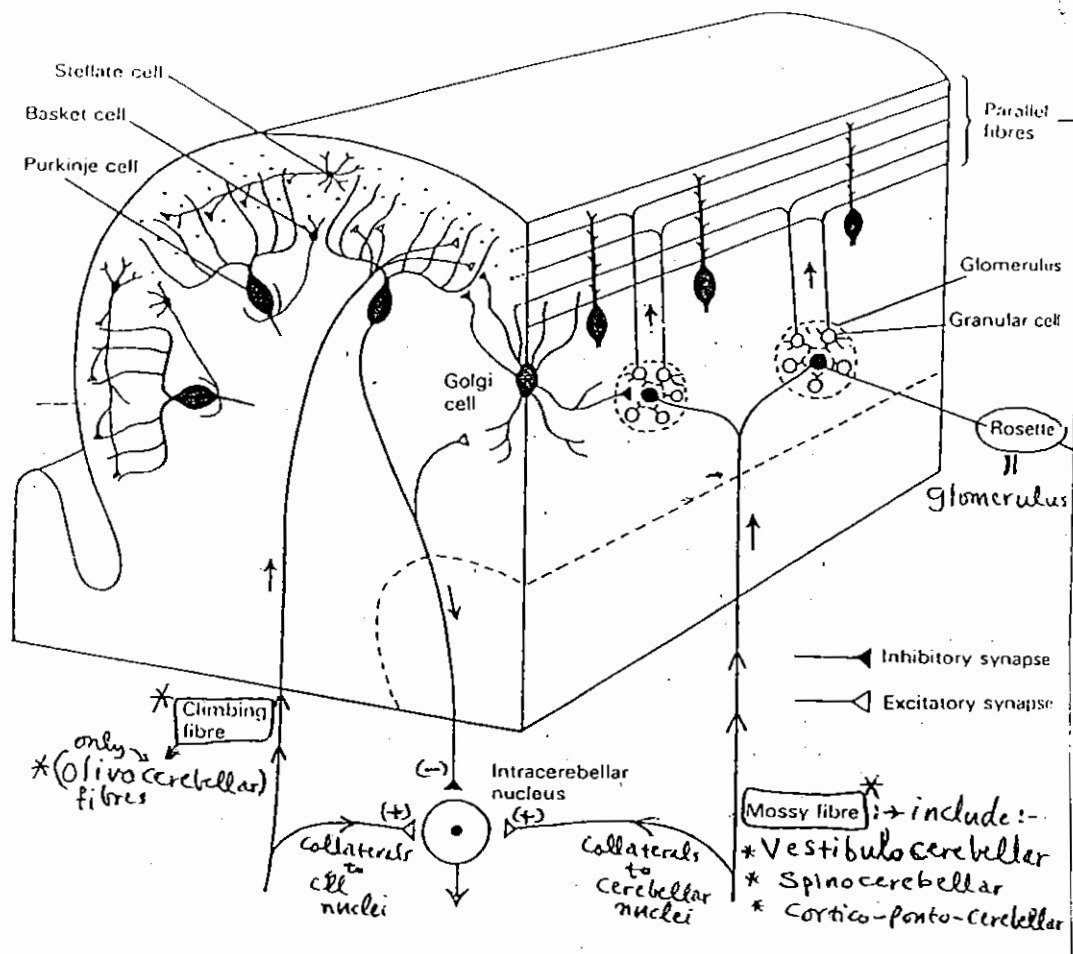 Stellate cell
Basket cell
Purkinje cell
Parallel
fibres
Glomerulus
Granular cell
Golgi
cell
Rosette
||
glomerulus
Inhibitory synapse
Excitatory synapse
* Climbing
fibre
only
* (Olivocerebellar)
fibres
(-)
Intracerebellar
nucleus
(+)
(+)
Collaterals
to
cll
nuclei
Collaterals
to
cerebellar
nuclei
*
Mossy fibre :→ include :-
* Vestibulocerebellar
* Spinocerebellar
* Cortico-ponto-cerebellar